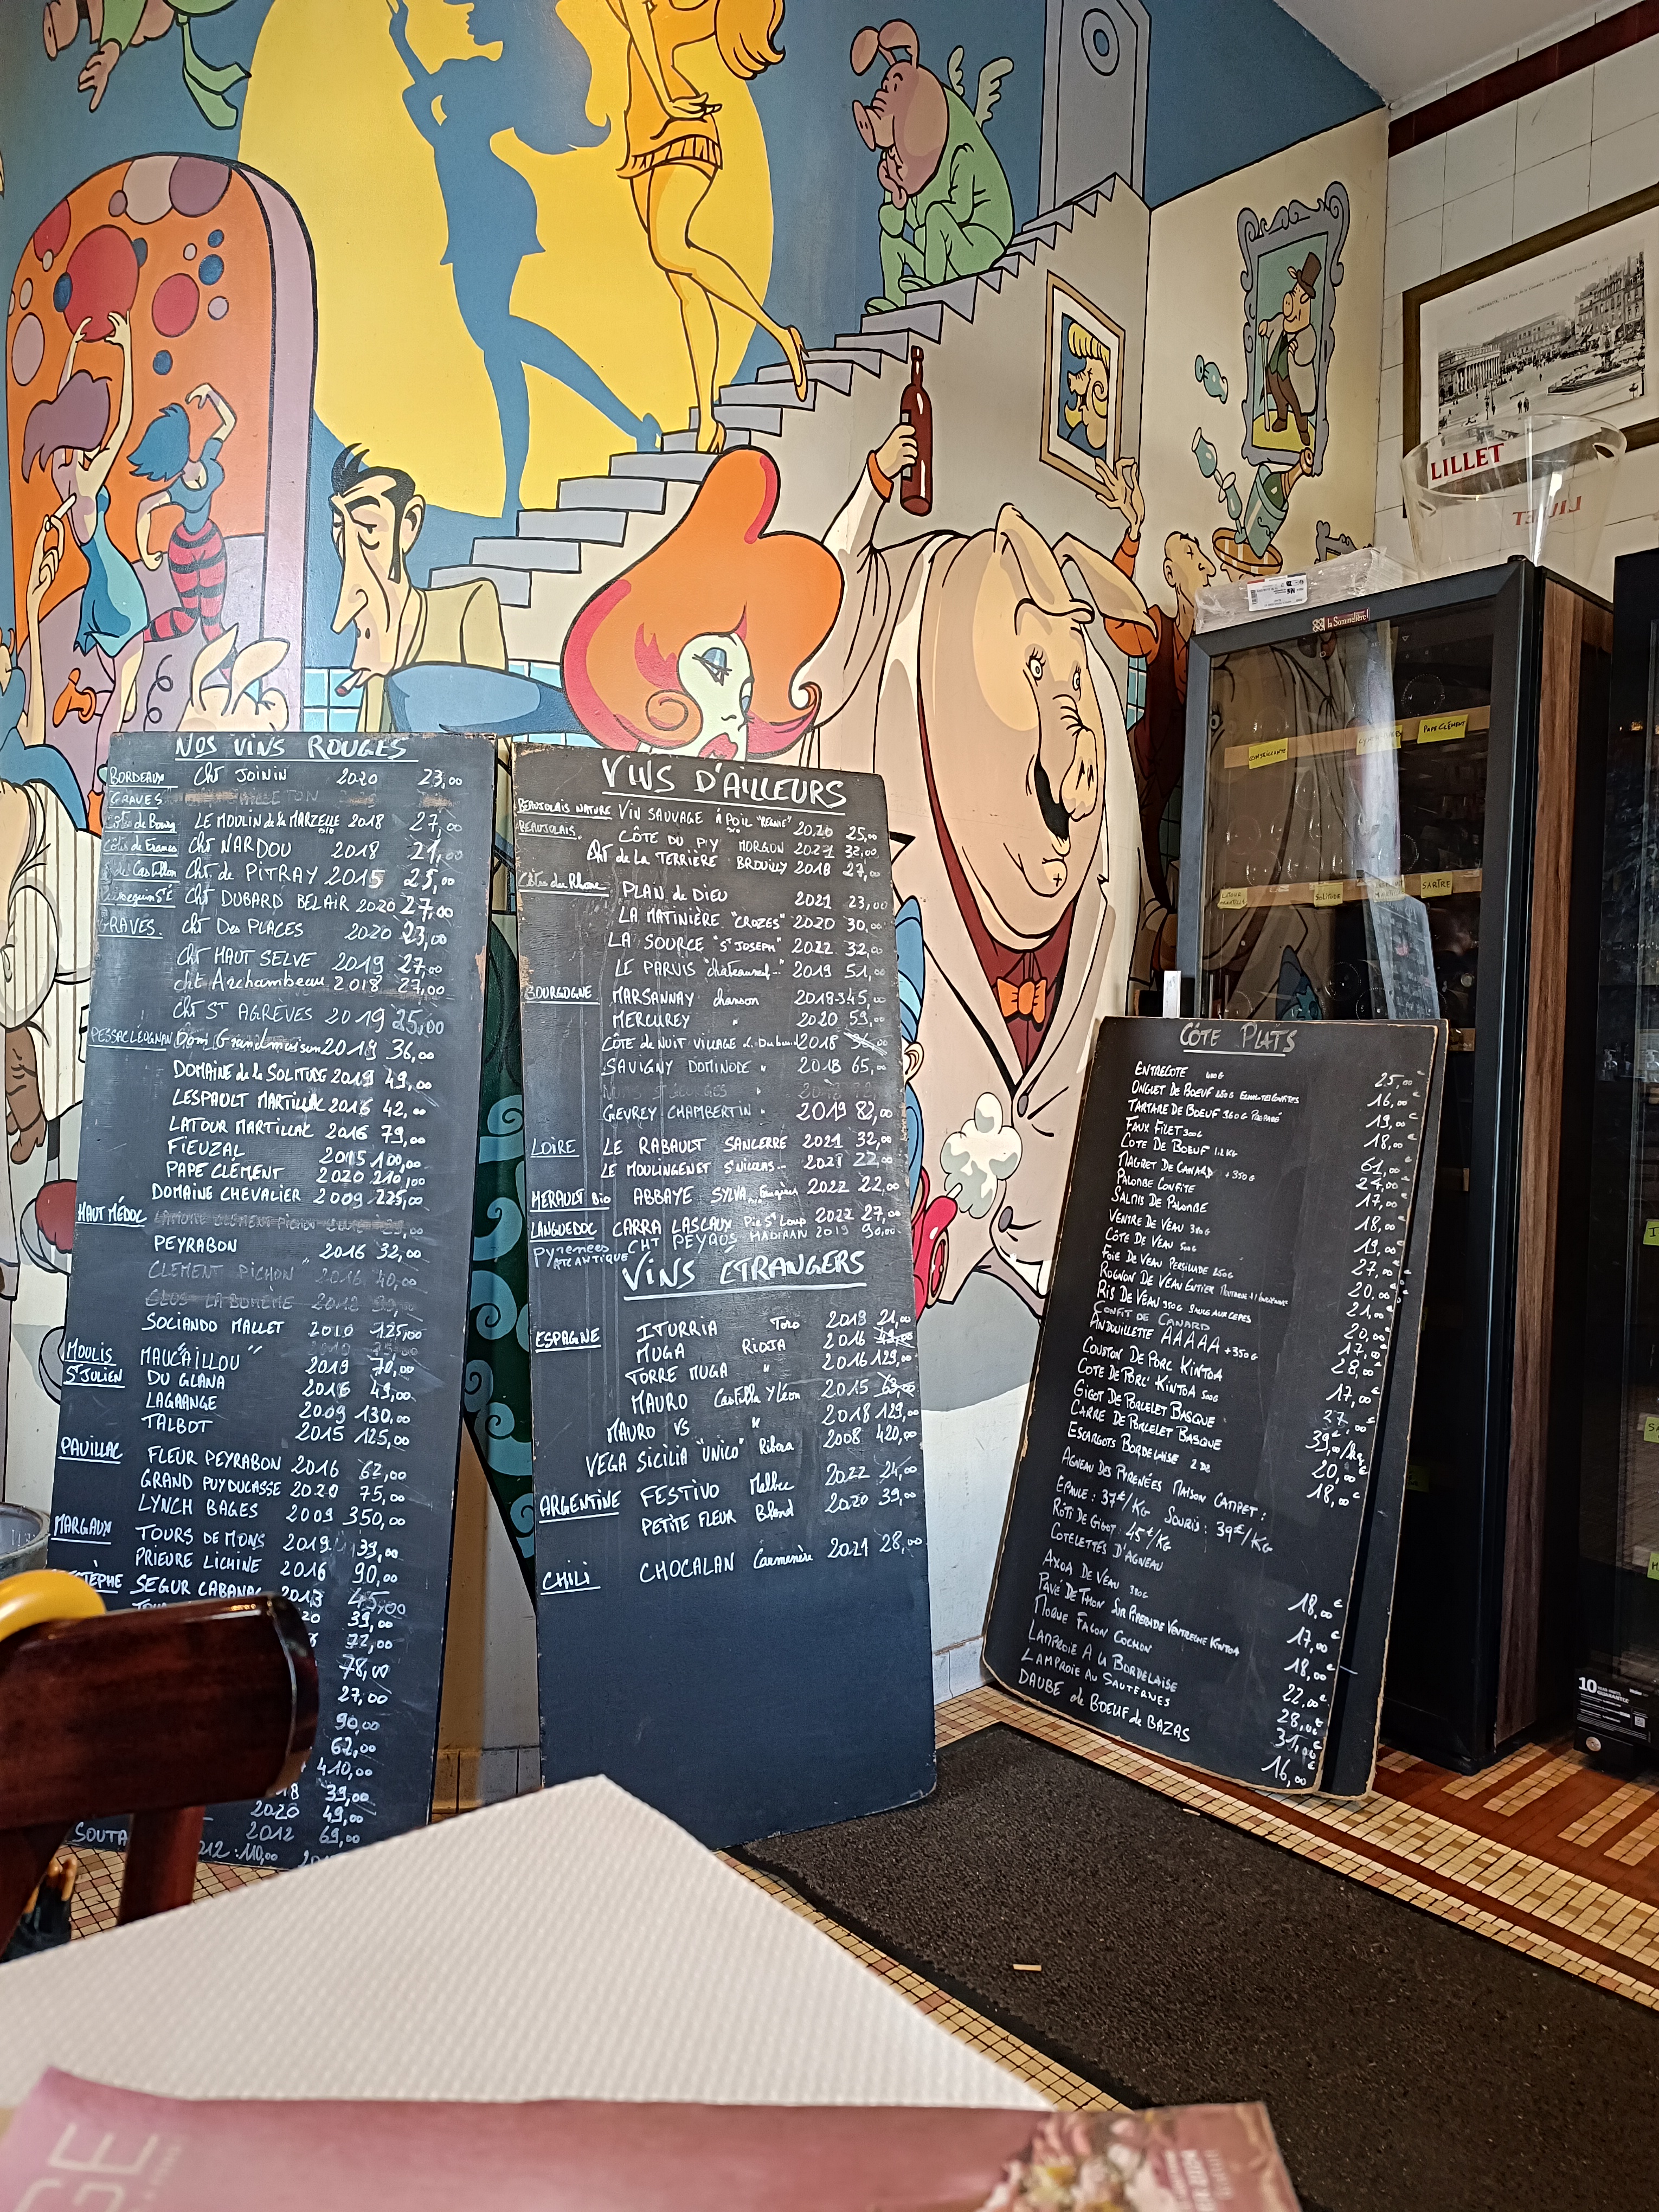 NOS VINS ROUGES
BORDEAUX Cht JOININ 2020 23,00
GRAVES
Côtes de Bourg LE MOULIN de la MARZELLE bio 2018 27,00
Côtes de Francs Cht NARDOU 2018 21,00
de Castillon Cht. de PITRAY 2015 25,00
Cht DUBARD BEL AIR 2020 27,00
GRAVES. Cht Des PLACES 2020 23,00
Cht HAUT SELVE 2019 27,00
cht Archambeau 2018 27,00
Cht St AGRÈVES 2019 25,00
PESSAC LEOGNAN Dom Grandmaison 2019 36,00
DOMAINE de la SOLITUDE 2019 49,00
LESPAULT MARTILLAC 2016 42,00
LATOUR MARTILLAC 2016 79,00
FIEUZAL 2015 100,00
PAPE CLÉMENT 2020 210,00
DOMAINE CHEVALIER 2009 225,00
HAUT MÉDOC
PEYRABON 2016 32,00
CLEMENT PICHON 2016 40,00
CLOS LA BOHÈME 2012
SOCIANDO MALLET 2010 125,00
MOULIS MAUCAILLOU 2019 70,00
St JULIEN DU GLANA 2016 49,00
LAGRANGE 2009 130,00
TALBOT 2015 125,00
PAUILLAC FLEUR PEYRABON 2016 62,00
GRAND PUY DUCASSE 2020 75,00
LYNCH BAGES 2009 350,00
MARGAUX TOURS DE MONS 2019 39,00
PRIEURE LICHINE 2016 90,00
STÈPHE SEGUR CABANAC 2013 45,00
20 39,00
72,00
78,00
27,00
90,00
62,00
410,00
18 39,00
2020 49,00
SOUTA 2012 69,00
2012 : 110,00
VINS D'AILLEURS
BEAUJOLAIS NATURE VIN SAUVAGE À POIL "RÉGNIÉ" bio 2020 25,00
BEAUJOLAIS. CÔTE DU PY MORGON 2021 32,00
Cht de LA TERRIÈRE BROUILLY 2018 27,00
Côtes du Rhône PLAN de DIEU 2021 23,00
LA MATINIÈRE "CROZES" 2020 30,00
LA SOURCE "St JOSEPH" 2022 32,00
LE PARVIS "chateauneuf..." 2019 51,00
BOURGOGNE MARSANNAY chanson 2018 45,00
MERCUREY " 2020 59,00
CÔTE de NUIT VILLAGE 2018
SAVIGNY DOMINODE " 2018 65,00
GEVREY CHAMBERTIN " 2019 82,00
LOIRE LE RABAULT SANCERRE 2021 32,00
LE MOULINGENET St NICOLAS... 2021 22,00
HERAULT Bio ABBAYE SYLVA 2022 22,00
LANGUEDOC CARRA LASCAUX Pic St Loup 2022 27,00
PYRENEES ATLANTIQUE CHT PEYROS MADIRAN 2019 30,00
VINS ÉTRANGERS
ESPAGNE ITURRIA Toro 2019 21,00
MUGA RIOJA 2016 49,00
TORRE MUGA " 2016 129,00
MAURO Castilla y León 2015 69,00
MAURO VS " 2018 129,00
VEGA SICILIA "UNICO" Ribera 2008 420,00
ARGENTINE FESTIVO Malbec 2022 24,00
PETITE FLEUR Blend 2020 39,00
CHILI CHOCALAN Carmenère 2021 28,00
CÔTE PLATS
ENTRECOTE 400G 25,00€
ONGLET DE BOEUF 250G ECHALOTES CONFITES 16,00€
TARTARE DE BOEUF 360G PREPARÉ 19,00€
FAUX FILET 300G 18,00€
CÔTE DE BOEUF 1.2KG 61,00€
MAGRET DE CANARD +350G 24,00€
PALOMBE CONFITE 17,00€
SALMIS DE PALOMBE 18,00€
VENTRE DE VEAU 380G 19,00€
CÔTE DE VEAU 500G 27,00€
FOIE DE VEAU PERSILLADE 250G 20,00€
ROGNON DE VEAU ENTIER 21,00€
RIS DE VEAU 350G SAUCE AUX CEPES
CONFIT DE CANARD 20,00€
ANDOUILLETTE AAAAA +350G 17,00€
COUSTON DE PORC KINTOA 28,00€
COTE DE PORC KINTOA 500G 17,00€
GIGOT DE PORCELET BASQUE 27,00€
CARRE DE PORCELET BASQUE 39,00€/kg
ESCARGOTS BORDELAISE 2 DZ 20,00€
18,00€
AGNEAU DES PYRENÉES MAISON CAMPET :
EPAULE : 37€/KG SOURIS : 39€/KG
RÔTI DE GIGOT : 45€/KG
COTELETTES D'AGNEAU
AXOA DE VEAU 380G 18,00€
PAVÉ DE THON SUR PIPERADE VENTRECHE KINTOA 17,00€
MORUE FACON COCHON 18,00€
LAMPROIE A LA BORDELAISE 22,00€
LAMPROIE AU SAUTERNES 28,00€
31,00€
DAUBE de BOEUF de BAZAS 16,00€
LILLET
la Sommelière
PAPE CLÉMENT
SOLITUDE
SARTRE
10
GUARANTEE